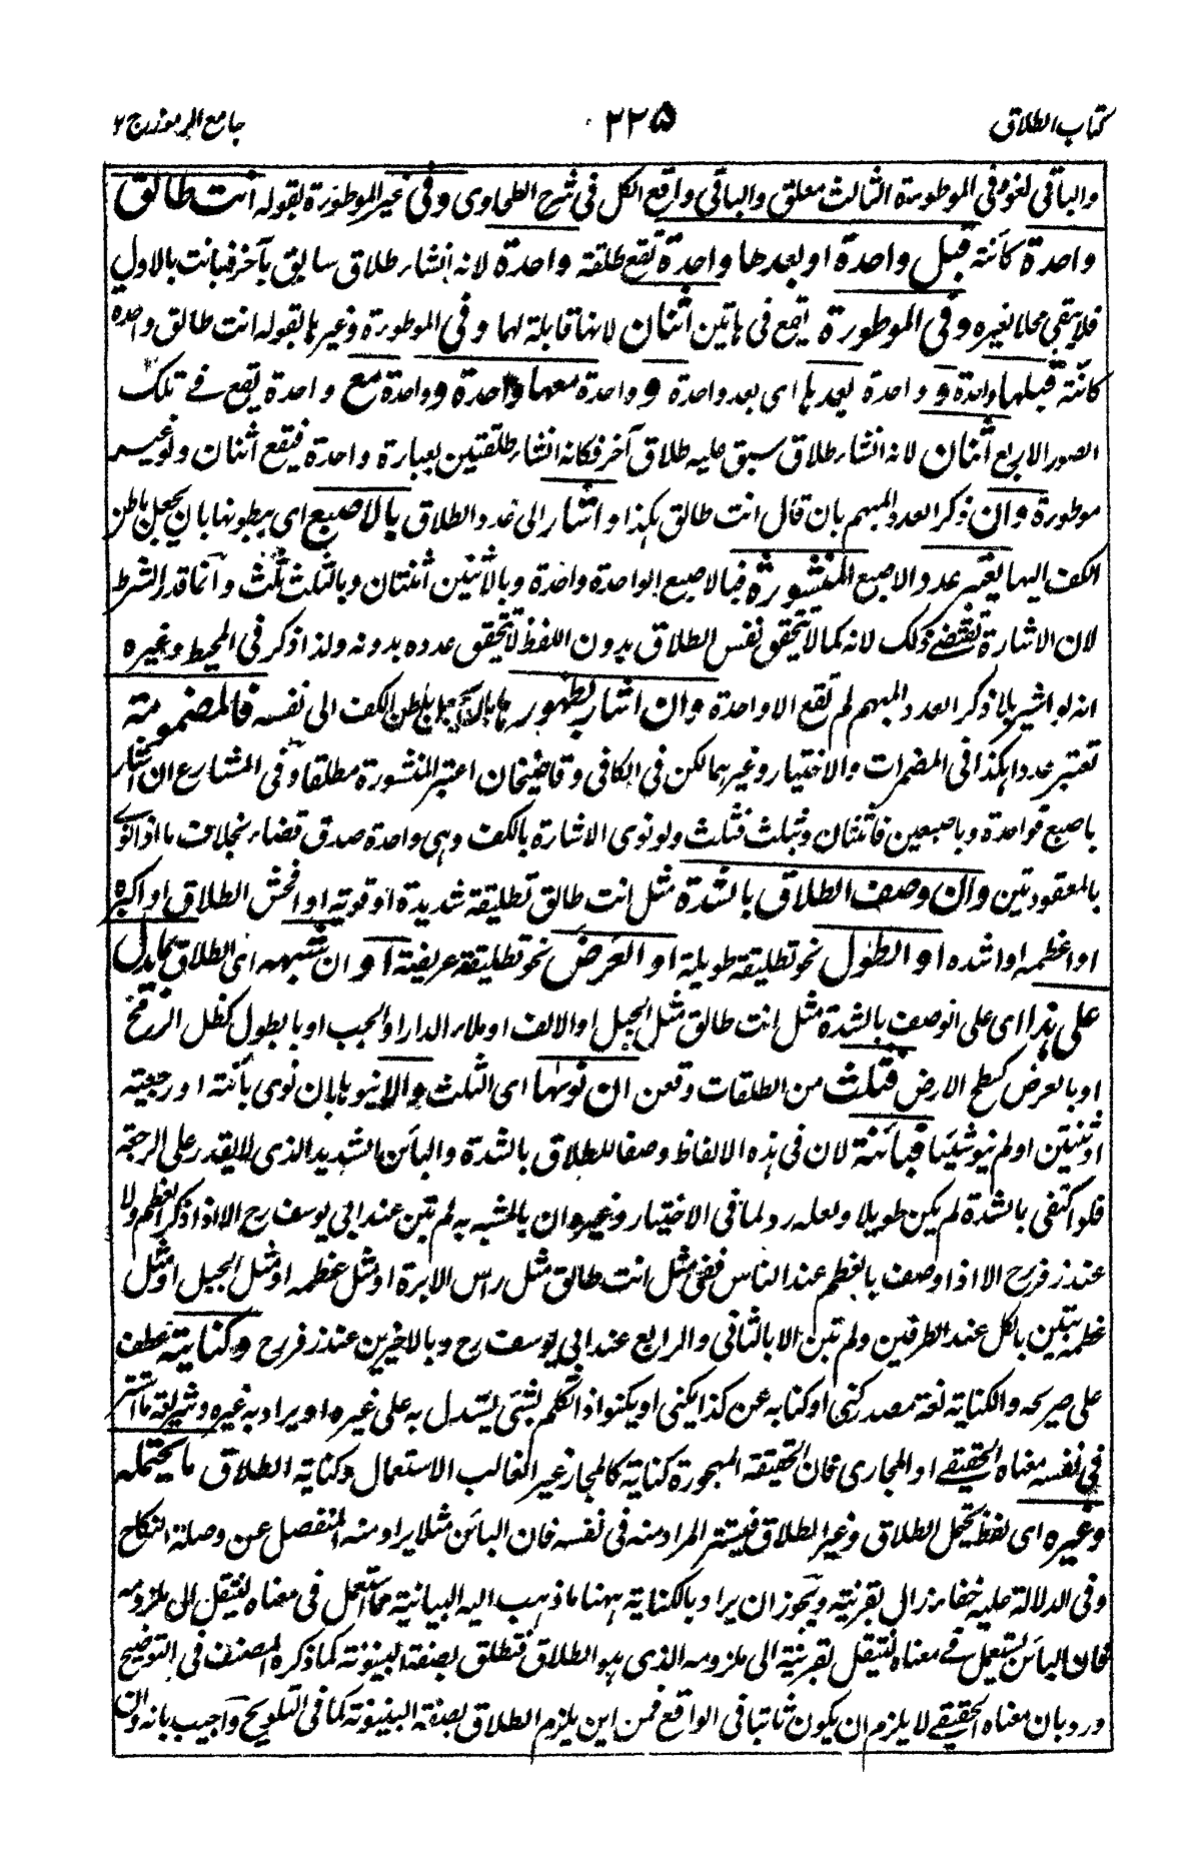 كتاب الطلاق
٢٢٥
جامع الرموز ج ٢
والباقى لغو وفى الموطوءة الثالث معلق والباقى واقع الكل فى شرح الطحاوى وفى غير الموطوءة بقوله انت طالق
واحدة كائنة قبل واحدة او بعدها واحدة تقع طلقة واحدة لانه انشاء طلاق سابق بآخر فبانت بالاول
فلا يبقى محلا لغيره وفى الموطورة يقع فى هاتين اثنان لانها قابلة لهما وفى الموطورة وغيرها بقوله انت طالق واحدة
كائنة قبلها واحدة و واحدة بعدها اى بعد واحدة و واحدة معها واحدة و واحدة مع واحدة يقع فے تلك
الصور الاربع اثنان لانه انشاء طلاق سبق عليه طلاق آخر فكانه انشاء طلقتين بعبارة واحدة فيقع اثنان ولو غير
موطورة وان ذكر العدد المبهم بان قال انت طالق هكذا و اشار الى عدد الطلاق بالاصبع اى ببطونها بان يجعل باطن
الكف اليها يعتبر عدد الاصبع المنشورة فبالاصبع الواحدة واحدة وبالاثنين اثنتان وبالثلث ثلث وانما قدر الشرط
لان الاشارة تقتضے ذلك لانه كما لا يتحقق نفس الطلاق بدون اللفظ لا يتحقق عدده بدونه ولذا ذكر فى المحيط وغيره
انه لو اشير بلا ذكر العدد المبهم لم تقع الا واحدة وان اشار بظهورها بان يجعل باطن الكف الى نفسه فالمضمومة
تعتبر عددا هكذا فى المضمرات والاختيار وغيرهما لكن فى الكافى وقاضيخان اعتبر المنشورة مطلقا وفى المشارع ان اشار
باصبع فواحدة وباصبعين فاثنتان وبثلث فثلث ولو نوى الاشارة بالكف وهى واحدة صدق قضاء بخلاف ما اذا نوے
بالمعقودتين وان وصف الطلاق بالشدة مثل انت طالق تطليقة شديدة او قوية او افحش الطلاق او اكبره
او اعظمه او اشده او الطول نحو تطليقة طويلة او العرض نحو تطليقة عريضة او ان شبهه اى الطلاق بما يدل
على هذا اى على الوصف بالشدة مثل انت طالق مثل الجبل او الالف او ملاء الدار او الجب او بالطول كظل الرمح
او بالعرض كسطح الارض فثلث من الطلقات وقعن ان نوىها اى الثلث والا ينوها بان نوى بائنة او رجعية
او ثنتين او لم ينو شيئا فبائنة لان فى هذه الالفاظ وصفا للطلاق بالشدة والبائن الشديد الذى لا يقدر على الرجعة
فلو اكتفى بالشدة لم يكن طويلا ولعله رد لما فى الاختيار وغيره ان بالمشبه به لم تبن عند ابى يوسف رح الا اذا ذكر العظم ولا
عند زفر رح الا اذا وصف بالعظم عند الناس ففى مثل انت طالق مثل راس الابرة او مثل عظمه او مثل الجبل او مثل
عظمه تبين بالكل عند الطرفين ولم تبن الا بالثانى والرابع عند ابى يوسف رح وبالاخيرين عند زفر رح وكناية عطف
على صريحه والكناية لغة مصدر كنى او كنا به عن كذا يكنى او يكنو اذا تكلم بشئى يستدل به على غيره او يراد به غيره وشريعة ما استتر
فى نفسه معناه الحقيقے او المجازى فان الحقيقة المهجورة كناية كالمجاز غير الغالب الاستعمال وكناية الطلاق ما يحتمله
وغيره اى لفظ يحتمل الطلاق وغير الطلاق فيستتر المراد منه فى نفسه فان البائن مثلا يراد منه المنفصل عن وصلة النكاح
وفى الدلالة عليه خفاء زال بقرينة ويجوز ان يراد بالكناية ههنا ما ذهب اليه البيانية مما استعمل فى معناه لينتقل الى ملزومه
فان البائن يستعمل فے معناه لينتقل بقرينة الى ملزومه الذى هو الطلاق فتطلق بصفة البينونة كما ذكره المصنف فى التوضيح
ورد بان معناه الحقيقے لا يلزم ان يكون ثابتا فى الواقع فمن اين يلزم الطلاق بصفة البينونة كما فى التلويح واجيب بانه وان